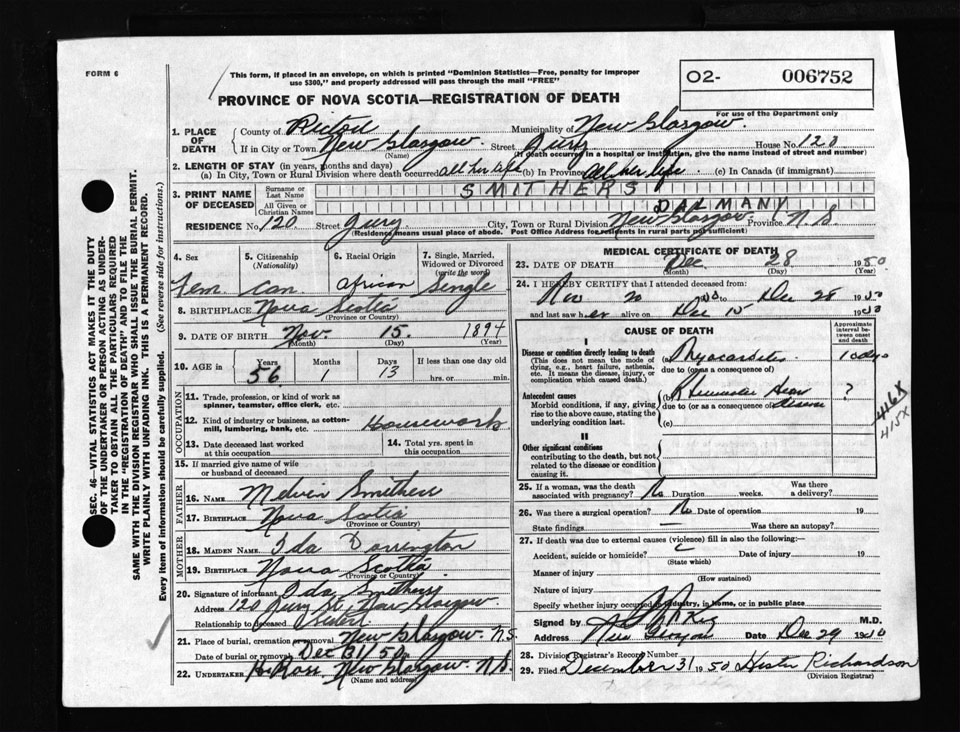 FORM 6
This form, if placed in an envelope, on which is printed "Dominion Statistics—Free, penalty for improper
use $300," and properly addressed will pass through the mail "FREE"
O2- 006752
PROVINCE OF NOVA SCOTIA—REGISTRATION OF DEATH
For use of the Department only
1. PLACE OF DEATH
County of Pictou Municipality of New Glasgow.
If in City or Town New Glasgow. Street Jury House No. 120
(Name) (If death occurred in a hospital or institution, give the name instead of street and number)
2. LENGTH OF STAY (in years, months and days)
(a) In City, Town or Rural Division where death occurred all her life (b) In Province all her life (c) In Canada (if immigrant)
3. PRINT NAME OF DECEASED
Surname or Last Name SMITHERS
All Given or Christian Names DALMANY
RESIDENCE No. 120 Street Jury City, Town or Rural Division New Glasgow. Province N.S
(Residence means usual place of abode. Post Office Address for residents in rural parts not sufficient)
4. Sex
5. Citizenship (Nationality)
6. Racial Origin
7. Single, Married, Widowed or Divorced (write the word)
Fem. Can. African Single
8. BIRTHPLACE Nova Scotia
(Province or Country)
9. DATE OF BIRTH Nov. 15. 1894
(Month) (Day) (Year)
10. AGE in Years Months Days If less than one day old
56 1 13 hrs. or min.
OCCUPATION
11. Trade, profession, or kind of work as
spinner, teamster, office clerk, etc.
12. Kind of industry or business, as cotton-
mill, lumbering, bank, etc. Housework
13. Date deceased last worked
at this occupation
14. Total yrs. spent in
this occupation
15. If married give name of wife
or husband of deceased
FATHER
16. NAME Melvin Smithers
17. BIRTHPLACE Nova Scotia
(Province or Country)
MOTHER
18. MAIDEN NAME Ida Dorrington
19. BIRTHPLACE Nova Scotia
(Province or Country)
20. Signature of informant Ida Smithers
Address 120 Jury St. New Glasgow.
Relationship to deceased
21. Place of burial, cremation or removal New Glasgow. N.S.
Date of burial or removal Dec 31/50
22. UNDERTAKER Ross. New Glasgow. N.S.
(Name and address)
MEDICAL CERTIFICATE OF DEATH
23. DATE OF DEATH Dec 28 1950
(Month) (Day) (Year)
24. I HEREBY CERTIFY that I attended deceased from:
Nov 20 Dec 28 1950
and last saw her alive on Dec 15 1950
CAUSE OF DEATH
Approximate interval between onset and death
I
Disease or condition directly leading to death
(This does not mean the mode of
dying, e.g., heart failure, asthenia,
etc. It means the disease, injury, or
complication which caused death.)
(a) Myocarditis 10 days
due to (or as a consequence of)
Antecedent causes
Morbid conditions, if any, giving
rise to the above cause, stating the
underlying condition last.
(b) Rheumatic Heart disease ?
due to (or as a consequence of)
(c)
416X
415X
II
Other significant conditions
contributing to the death, but not
related to the disease or condition
causing it.
25. If a woman, was the death
associated with pregnancy? No Duration weeks. Was there
a delivery?
26. Was there a surgical operation? No Date of operation 19
State findings — Was there an autopsy?
27. If death was due to external causes (violence) fill in also the following:—
Accident, suicide or homicide? Date of injury 19
(State which)
Manner of injury
(How sustained)
Nature of injury
Specify whether injury occurred in industry, in home, or in public place
Signed by M.D.
Address New Glasgow Date Dec 29 1950
28. Division Registrar's Record Number
29. Filed December 31 1950 Hester Richardson
(Division Registrar)
SEC. 46—VITAL STATISTICS ACT MAKES IT THE DUTY
OF THE UNDERTAKER OR PERSON ACTING AS UNDER-
TAKER TO OBTAIN ALL THE PARTICULARS REQUIRED
IN THE "REGISTRATION OF DEATH" AND TO FILE THE
SAME WITH THE DIVISION REGISTRAR WHO SHALL ISSUE THE BURIAL PERMIT.
WRITE PLAINLY WITH UNFADING INK. THIS IS A PERMANENT RECORD.
Every item of information should be carefully supplied. (See reverse side for instructions.)